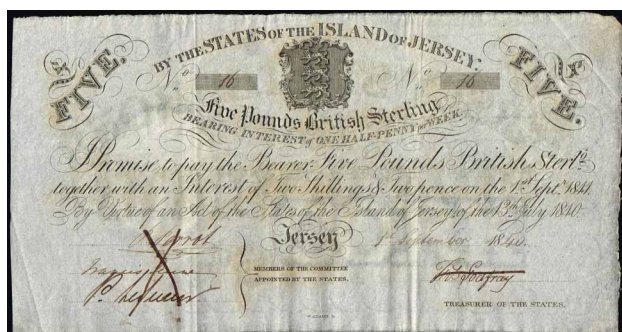 FIVE. BY THE STATES OF THE ISLAND OF JERSEY. FIVE.
No. 16 No. 16
Five Pounds British Sterling
BEARING INTEREST of ONE HALF-PENNY per WEEK
I Promise to pay the Bearer Five Pounds British Sterlg.
together with an Interest of Two Shillings & Twopence on the 1st Sept. 1841.
By Virtue of an Act of the States of the Island of Jersey of the 13th July 1840.
Jersey 1st September 1840.
MEMBERS OF THE COMMITTEE
APPOINTED BY THE STATES.
TREASURER OF THE STATES.